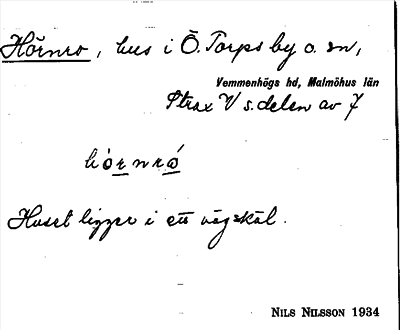 Hörnro, hus i Ö. Torps by o. sn,
Vemmenhögs hd, Malmöhus län
Strax V s. delen av 7
hórnró
Huset ligger i ett vägskäl.
NILS NILSSON 1934